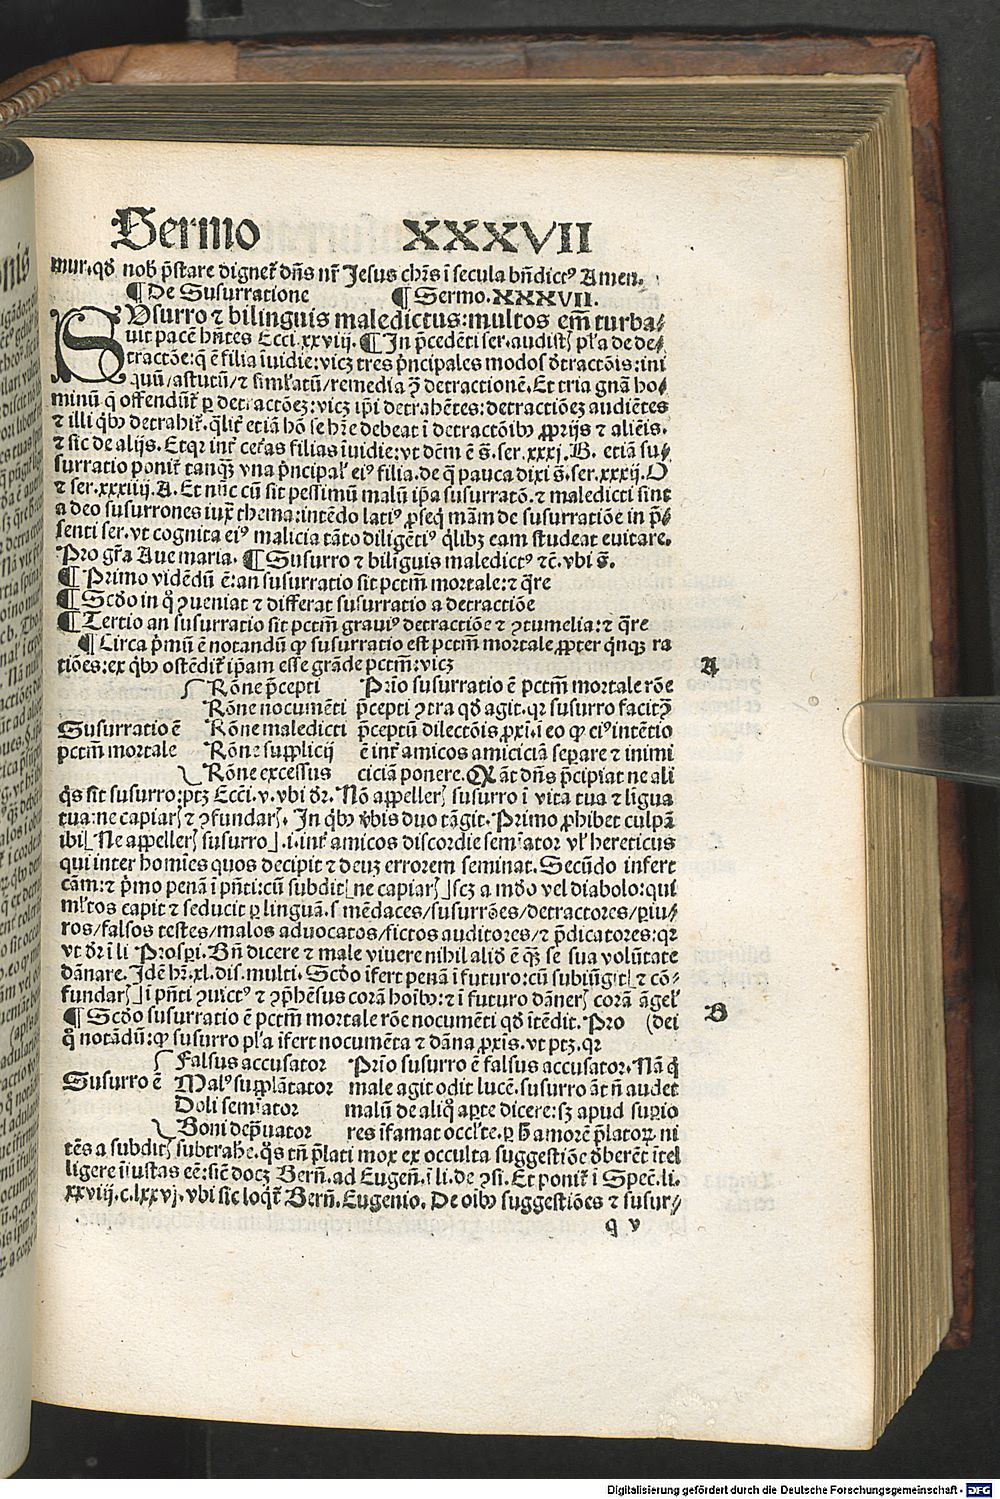 Sermo XXXVII
mur.qd nob p̄stare dignet᷑ dn̄s nr̄ Jesus chr̄s ī secula bn̄dict⁹ Amen.
¶ De Susurratione ¶ Sermo.XXXVII.
SUsurro ⁊ bilinguis maledictus:multos em̄ turba⸗
uit pacē hn̄tes Ecci.xxviij. ¶ In p̄cedēti ser.audistꝭ pl'a de de⸗
tractōe:q̄ ē filia īuidie:vicꝫ tres p̄ncipales modos d̄tractōis:ini
quū/astutū/⁊ simĺatū/remedia ꝯ̄ detractionē. Et tria gn̄a ho⸗
minū q̄ offendūt᷑ ꝑ detractōeꝫ:vicꝫ ip̄i detrahētes:detractiōeꝫ audiētes
⁊ illi qͥbꝰ detrahit᷑.qĺit᷑ etiā hō se hr̄e debeat ī detractōibꝰ ꝓprijs ⁊ aliēis.
⁊ sic de alijs. Etqr int᷑ cet᷑as filias īuidie:vt dcm̄ ē s̄. ser.xxxj.B. etiā su⸗
surratio ponit᷑ tanqꝫ vna p̄ncipal' ei⁹ filia.de q̄ pauca dixi s̄.ser.xxxij.O
⁊ ser.xxxiiij.A.Et nūc cū sit pessimū malū ip̄a susurratō.⁊ maledicti sint
a deo susurrones iuxͭ thema:intēdo lati⁹ ꝓseq̄ mām de susurratiōe in p̄⸗
senti ser.vt cognita ei⁹ malicia tāto diligēti⁹ qͥlibꝫ eam studeat euitare.
Pro gr̄a Aue maria. ¶ Susurro ⁊ biliguis maledict⁹ ⁊c̄.vbi s̄.
¶ Primo vidēdū ē:an susurratio sit pctm̄ mortale:⁊ q̄re
¶ Scd̄o in qͦ ꝯueniat ⁊ differat susurratio a detractiōe
¶ Tertio an susurratio sit pctm̄ graui⁹ detractiōe ⁊ ꝯtumelia:⁊ q̄re
¶ Circa p̄mū ē notandū ꝙ susurratio est pctm̄ mortale.ꝓpter qͥnqꝫ ra
tiōes:ex qͥbꝰ ostēdit᷑ ip̄am esse grāde pctm̄:vicꝫ
A
Susurratio ē
pctm̄ mortale
Rōne p̄cepti
Rōne nocumēti
Rōne maledicti
Rōne supplicij
Rōne excessus
Prīo susurratio ē pctm̄ mortale rōe
p̄cepti ꝯtra qd̄ agit.qr susurro facit ꝯ̄
p̄ceptū dilectōis ꝓxi.i eo ꝙ ei⁹ intētio
ē int᷑ amicos amiciciā seꝑare ⁊ inimi
ciciā ponere. Qꝫ āt dn̄s p̄cipiat ne ali
qͥs sit susurro:ptꝫ Ecci.v.vbi dr̄. Nō appellerꝭ susurro ī vita tua ⁊ līgua
tua:ne capiarꝭ ⁊ ꝯfundarꝭ. In qͥbꝰ v̄bis duo tāgit. Primo ꝓhibet culpā
ibi[ Ne appellerꝭ susurro ].i.int᷑ amicos discordie semīator vĺ hereticus
qui inter homīes quos decipit ⁊ deuꝫ errorem seminat. Secūdo infert
cām:⁊ p̄mo penā ī pn̄ti:cū subdit[ ne capiarꝭ ]scꝫ a mūdo vel diabolo:qui
mĺtos capit ⁊ seducit ꝑ linguā.s mēdaces/susurrōes/detractores/ꝑiu⸗
ros/falsos testes/malos aduocatos/fictos auditores/⁊ p̄dicatores:qr
vt dr̄ ī li Prosꝑi. Bn̄ dicere ⁊ male viuere nihil aliud ē qꝫ se sua volūtate
dānare. Idē hr̄.xl.dis.multi. Scd̄o īfert penā ī futuro:cū subiūgit[ ⁊ cō⸗
fundarꝭ ] ī pn̄ti ꝯuict⁹ ⁊ ꝯp̄hēsus corā hoībꝰ:⁊ ī futuro dānerꝭ corā āgel'
¶ Scd̄o susurratio ē pctm̄ mortale rōe nocumēti qd̄ ītēdit. Pro (dei
B
qͦ notādū:ꝙ susurro pl'a īfert nocumēta ⁊ dāna ꝓxīs.vt ptꝫ.qr
Susurro ē
Falsus accusator
Mal⁹ supplātator
Doli semīator
Boni dep̄uator
Prīo susurro ē falsus accusator. Nā qͥ
male agit odit lucē.susurro āt n̄ audet
malū de aliqͦ aꝑte dicere:sꝫ apud suꝑio
res īfamat occĺte.ꝑ h̄ amorē p̄latoꝝ ni
tēs a subditꝭ subtrahe.qͥs tn̄ p̄lati mox ex occulta suggestiōe d̄berēt ītel
ligere īiustas eē:sic̄ docꝫ Bern̄.ad Eugen̄.ī li.de ꝯsi. Et ponit᷑ ī Spec̄.li.
xxviij.c.lxxvj.vbi sic loqͥt᷑ Bern̄.Eugenio. De oībꝰ suggestiōes ⁊ susur⸗
q v
Digitalisierung gefördert durch die Deutsche Forschungsgemeinschaft - DFG